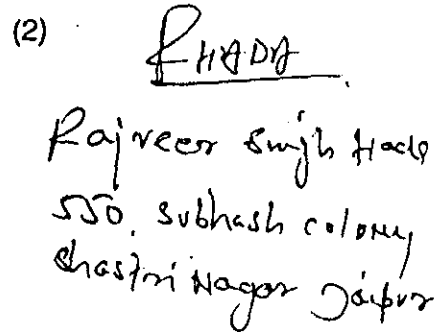 (2)
RHADA
Rajveer Singh Hada
550, Subhash colony
Shastri Nagar Jaipur